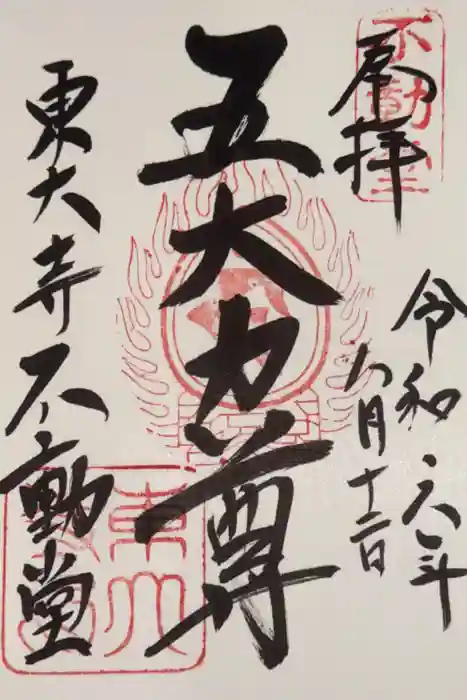 不動堂
奉拝
令和六年
八月十二日
五大力尊
東大寺不動堂